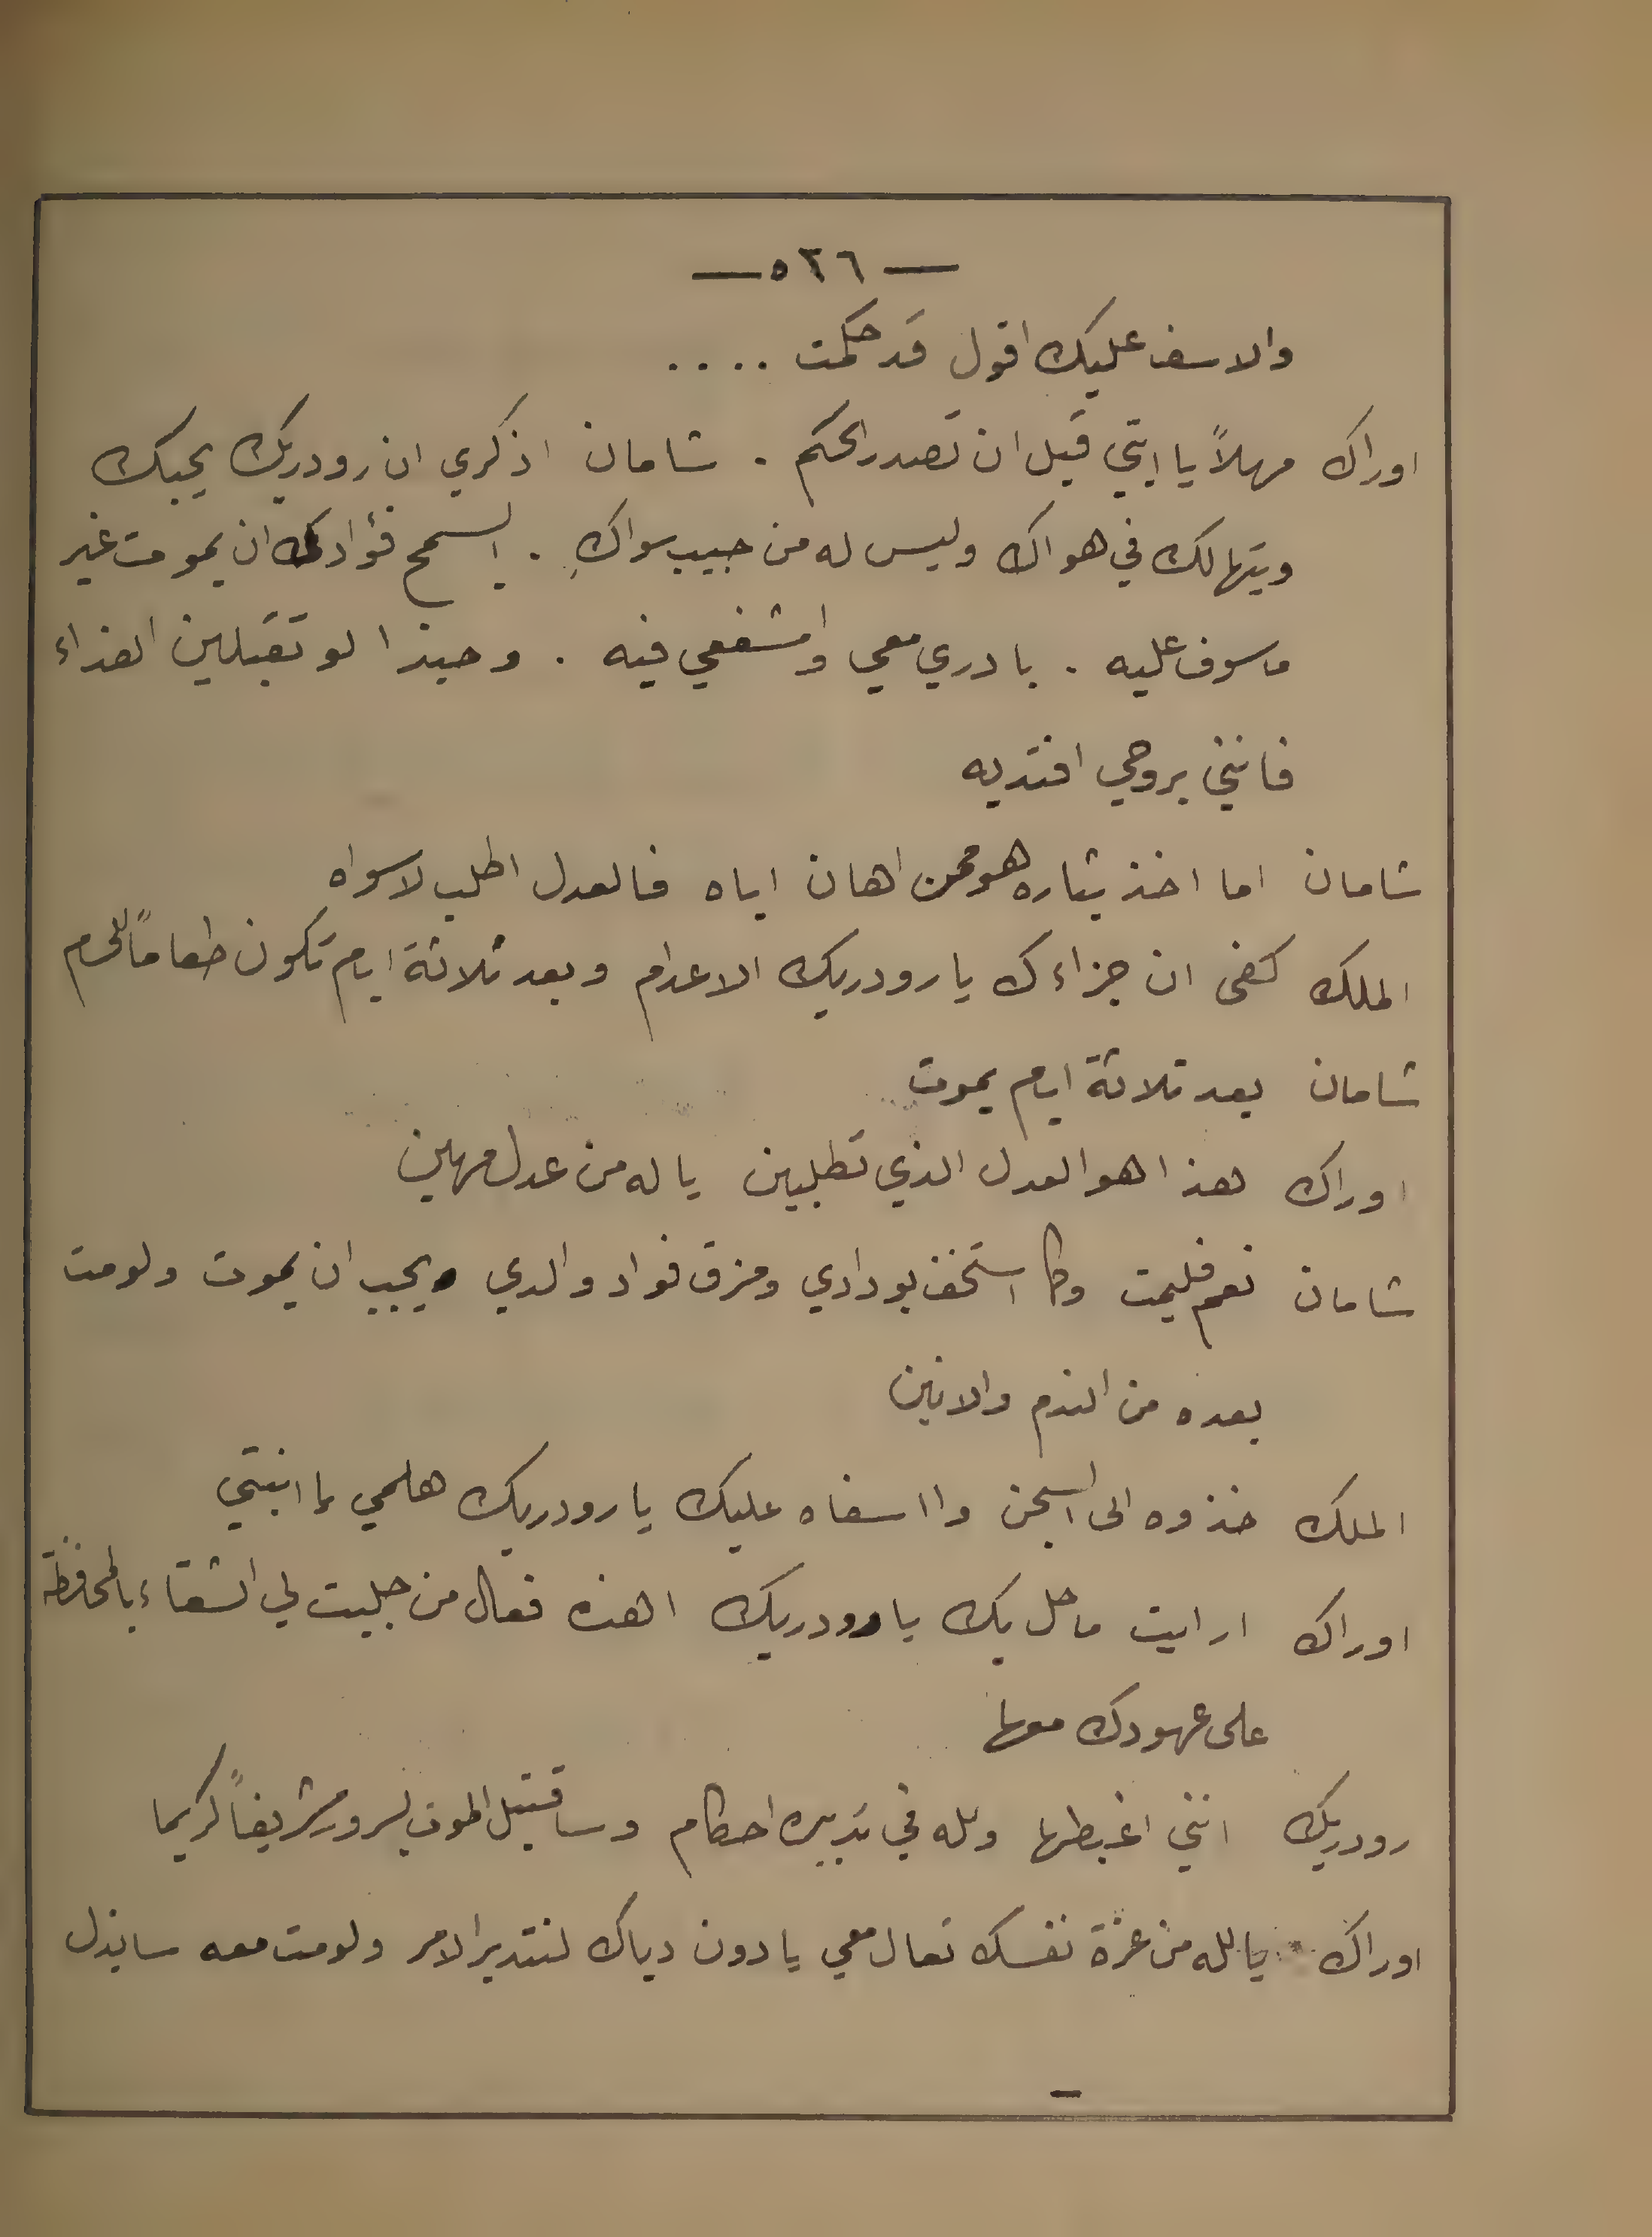 — ٥٢٦ —
والاسف عليك اقول قد حكمت ....
اوراك مهلاً يا ابتي قبل ان تصدر الحكم . شامان اذكري ان رودريك يحبك
ويتهالك في هواك وليس له من حبيب سواكِ . ايسمح فؤادك ان يموت غير
ماسوف عليه . بادري معي واشفعي فيه . وحبذا لو تقبلين الفداء
فانني بروحي افتديه
شامان اما اخذ بثاره ممن اهان اباه فالعدل اطلب لا سواه
الملك كفى ان جزاءك يا رودريك الاعدام وبعد ثلاثة ايام تكون طعاماً
شامان بعد ثلاثة ايام يموت
اوراك هذا هو العدل الذي تطلبين يا له من عدل مهين
شامان نعم فليمت وكما استخف بودادي ومزق فواد والدي يجب ان يموت ولو مت
بعده من الندم والانين
الملك خذوه الى السجن وااسفاه عليك يا رودريك هلمي يا ابنتي
اوراك ارايت ما حل بك يا رودريك اهذه فعال من جلبت لي الشقاء بالمحافظة
على عهودك معها
رودريك انني اغبطها ولله في تدبيره احكام وساقتبل الموت بسرور شريفاً كريما
اوراك يالله من عزة نفسك تعال معي يا دون دياك لنتدبر الامر ولو مت معه سابذل